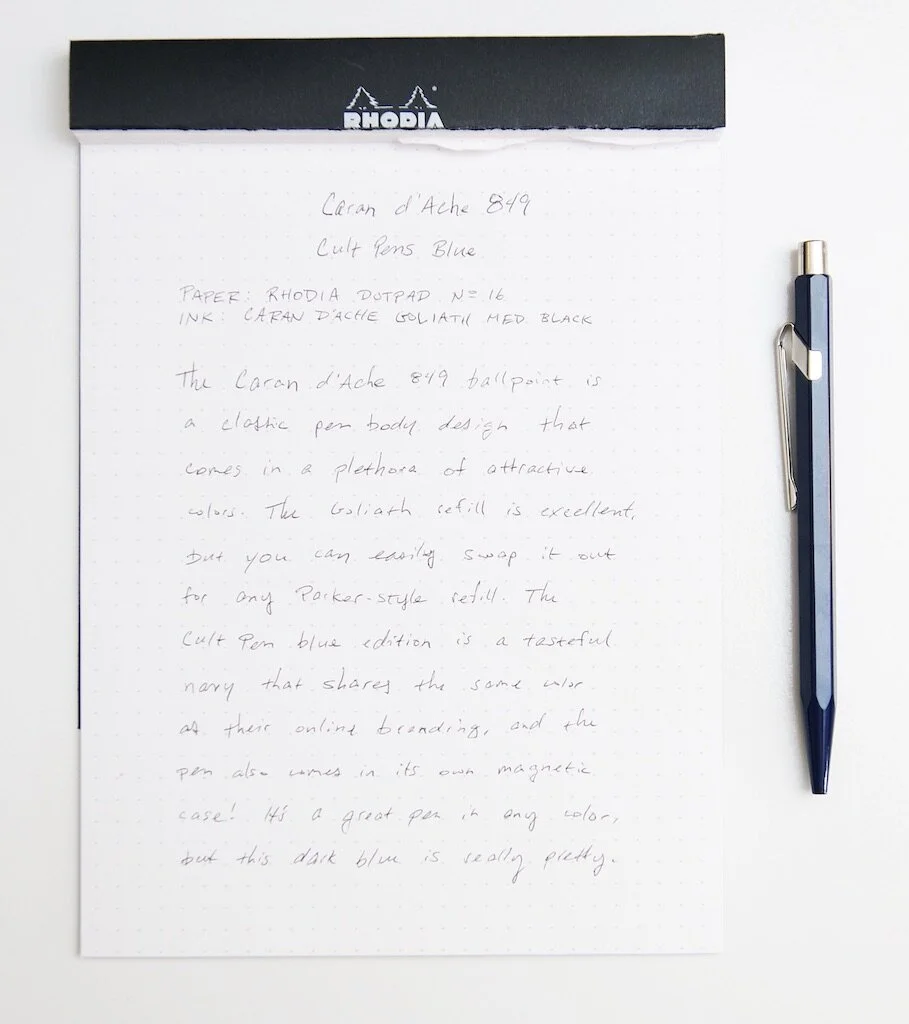 RHODIA
Caran d'Ache 849
Cult Pens Blue
PAPER: RHODIA DOTPAD Nº 16
INK: CARAN D'ACHE GOLIATH MED BLACK
The Caran d'Ache 849 ballpoint is
a classic pen body design that
comes in a plethora of attractive
colors. The Goliath refill is excellent,
but you can easily swap it out
for any Parker-style refill. The
Cult Pen blue edition is a tasteful
navy that shares the same color
as their online branding, and the
pen also comes in its own magnetic
case! It's a great pen in any color,
but this dark blue is really pretty.